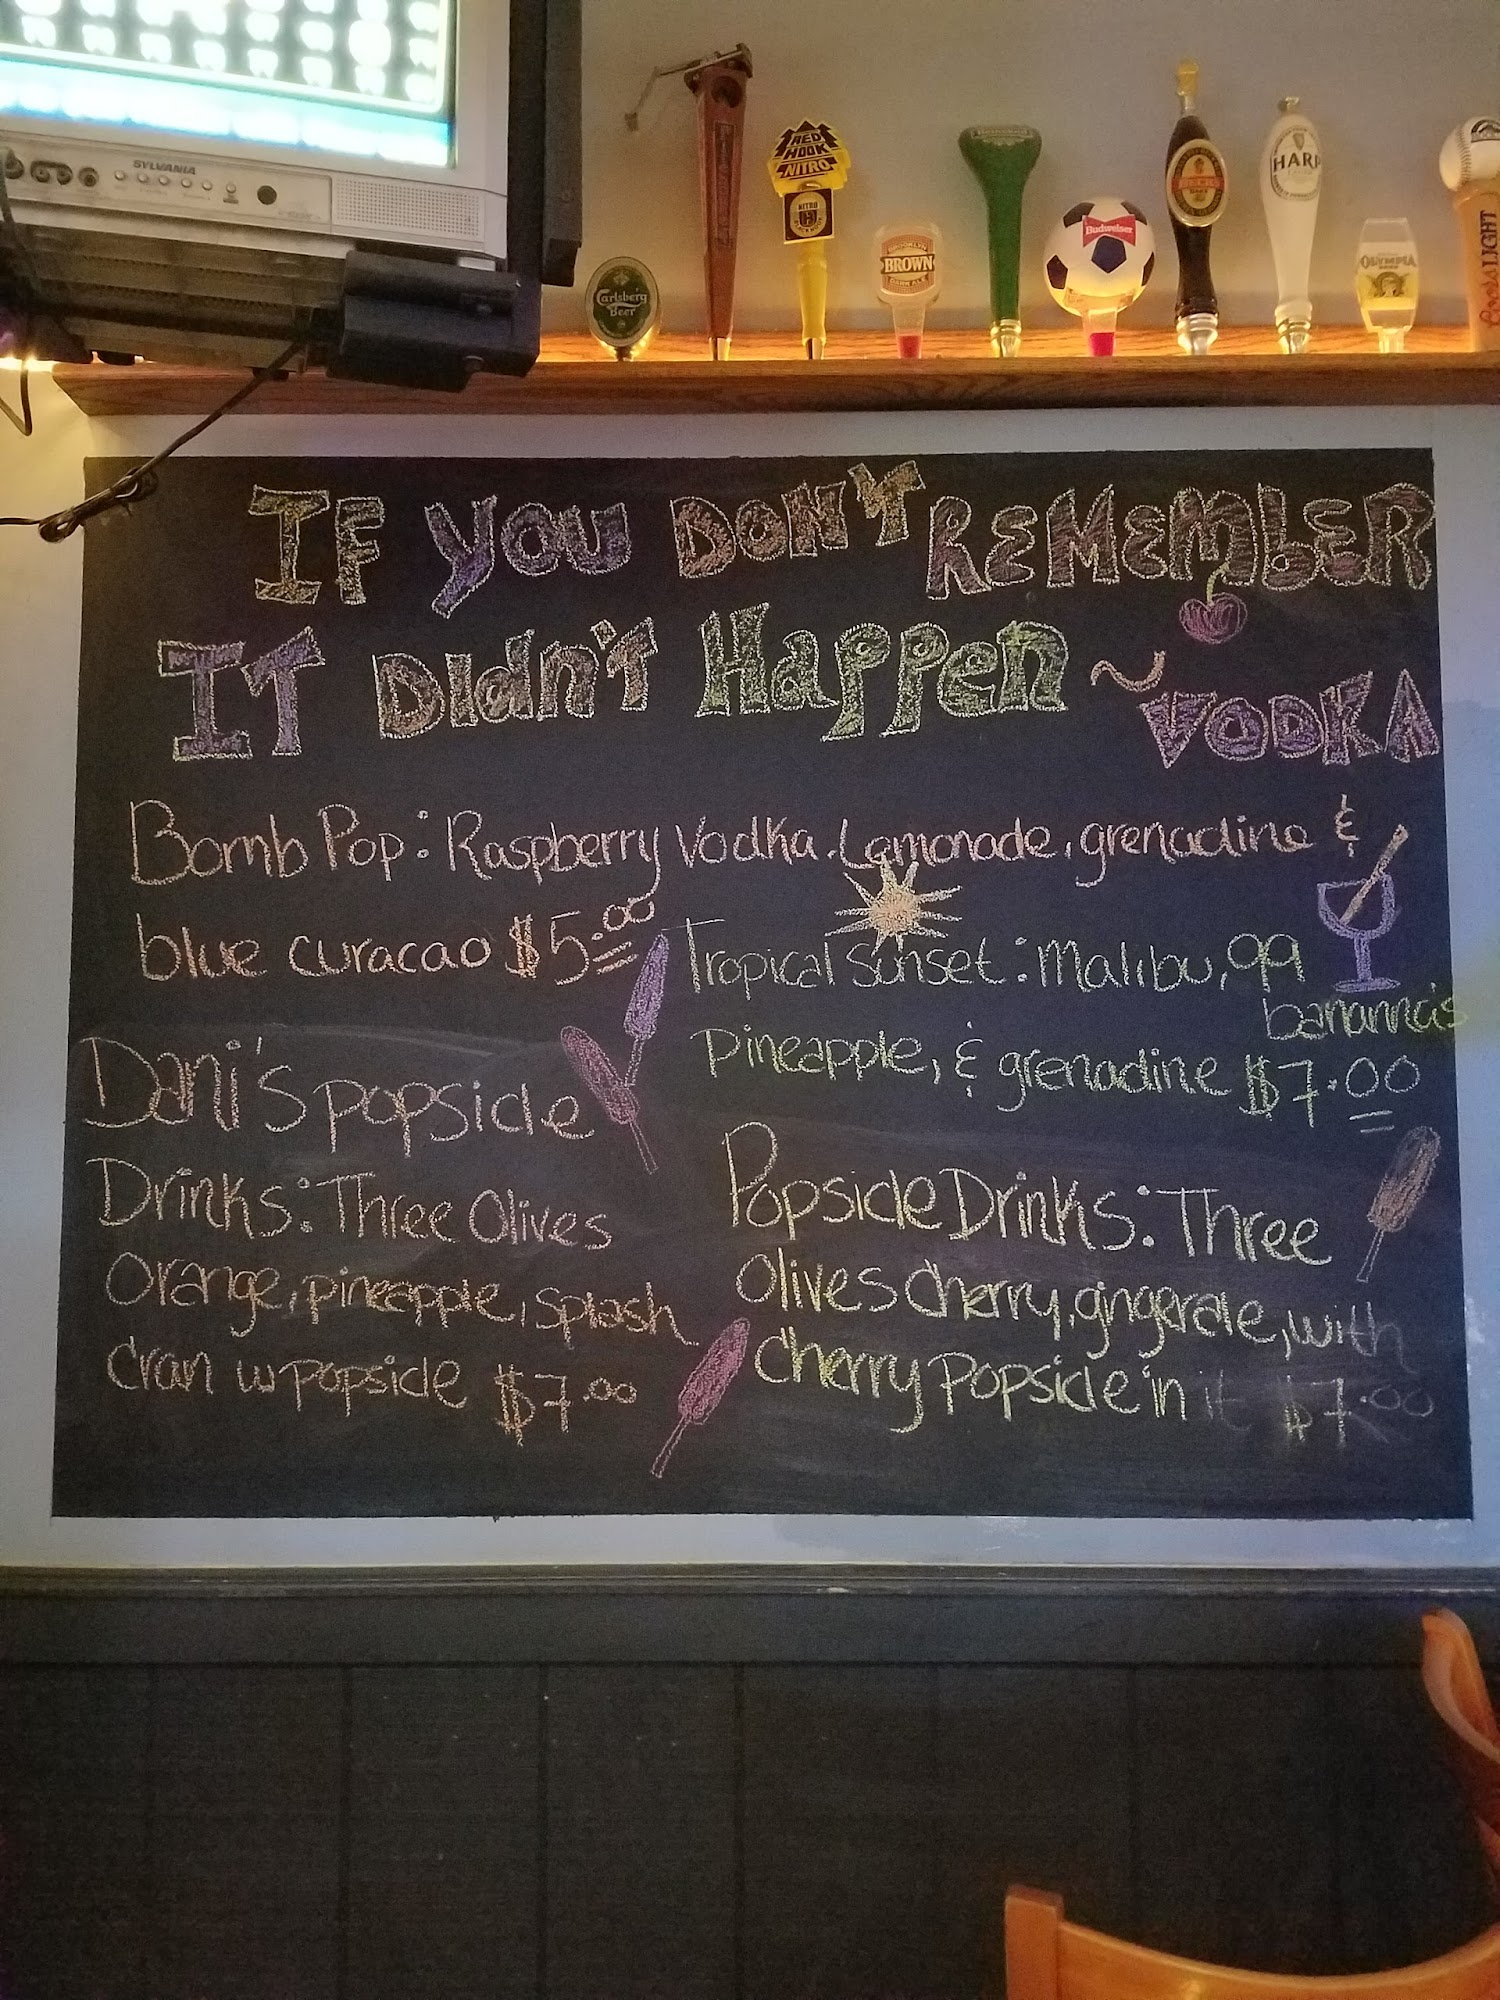 SYLVANIA
Carlsberg
Beer
RED
HOOK
NITRO
NITRO
BROOKLYN
BROWN
DARK ALE
Budweiser
HARP
OLYMPIA
Coors LIGHT
IF YOU DON'T REMEMBER
IT DIDN'T HAPPEN ~ VODKA
Bomb Pop: Raspberry Vodka, Lemonade, grenadine &
blue curacao $5.00
Tropical Sunset: Malibu, 99
bananna's
Pineapple, & grenadine $7.00
Dani's popsicle
Drinks: Three Olives
Orange, pineapple, splash
cran w popsicle $7.00
Popsicle Drinks: Three
Olives cherry, gingerale, with
cherry Popsicle in it $7.00